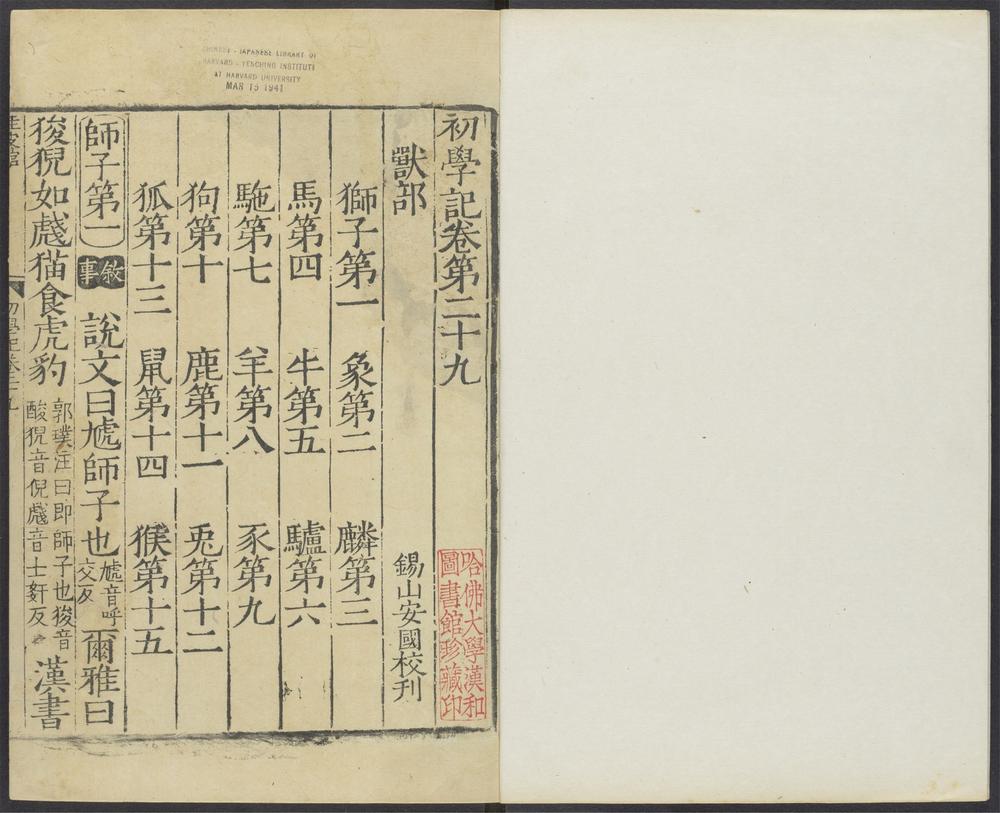 CHINESE - JAPANESE LIBRARY OF
HARVARD - YENCHING INSTITUTE
AT HARVARD UNIVERSITY
MAR 15 1941
初學記卷第二十九
哈佛大學漢和
圖書館珍藏印
獸部 錫山安國校刊
獅子第一 象第二 麟第三
馬第四 牛第五 驢第六
駞第七 羊第八 豕第九
狗第十 鹿第十一 兎第十二
狐第十三 鼠第十四 猴第十五
師子第一 敘事 說文曰虓師子也 虓音呼交反 爾雅曰
狻猊如虥猫食虎豹 郭璞注曰即師子也狻音酸猊音倪虥音士姧反 漢書